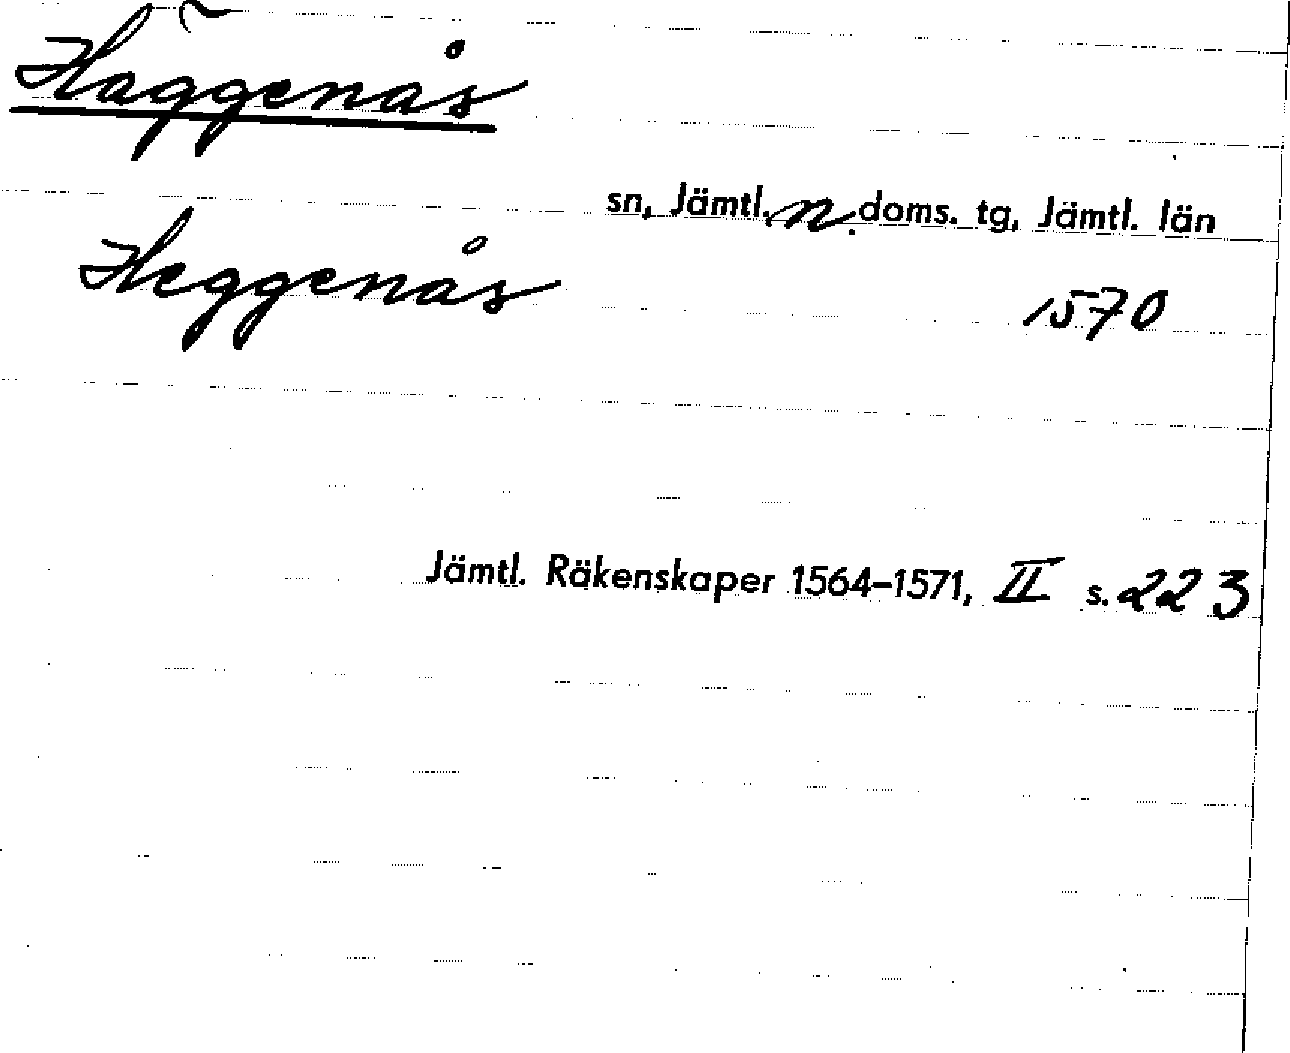 Häggenås
sn, Jämtl. n. doms. tg, Jämtl. län
Heggenås 1570
Jämtl. Räkenskaper 1564-1571, II s. 223